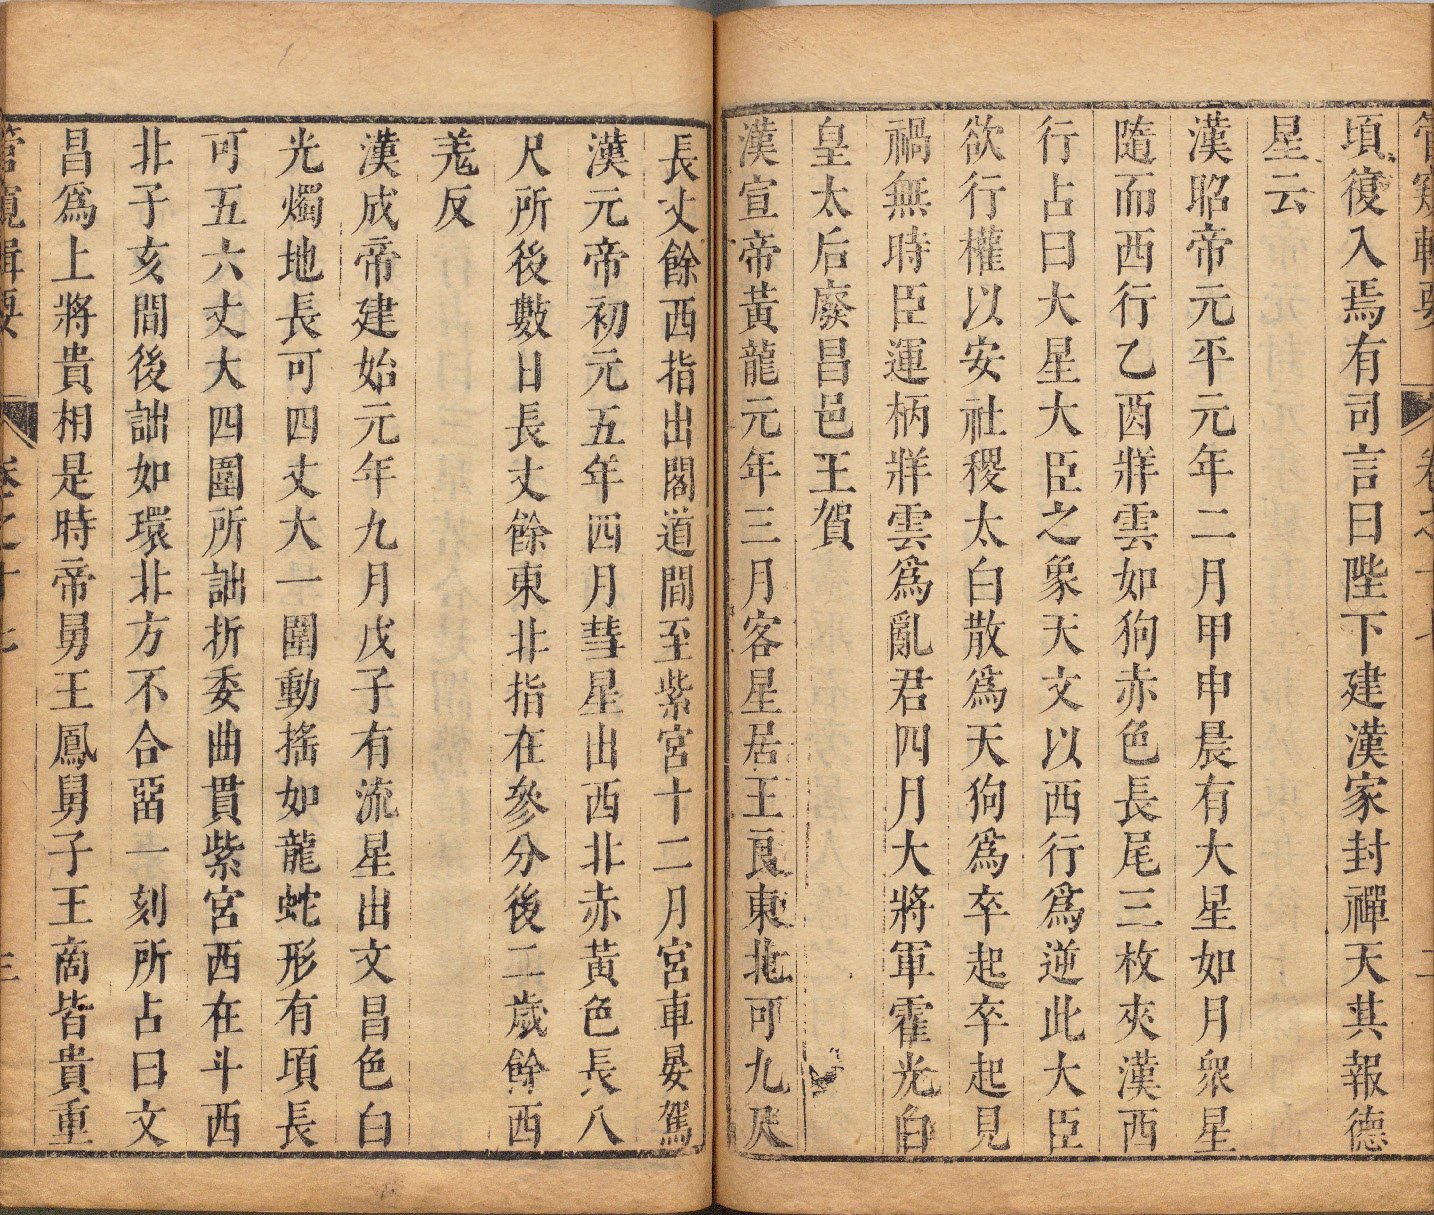 管窺輯要　卷之十七　二
頃復入焉有司言曰陛下建漢家封禪天其報德
星云
漢昭帝元平元年二月甲申晨有大星如月衆星
隨而西行乙酉牂雲如狗赤色長尾三枚夾漢西
行占曰大星大臣之象天文以西行爲逆此大臣
欲行權以安社稷太白散爲天狗爲卒起卒起見
禍無時臣運柄牂雲爲亂君四月大將軍霍光白
皇太后廢昌邑王賀
漢宣帝黃龍元年三月客星居王良東北可九尺
長丈餘西指出閣道間至紫宮十二月宮車晏駕
漢元帝初元五年四月彗星出西北赤黃色長八
尺所後數日長丈餘東北指在參分後二歲餘西
羌反
漢成帝建始元年九月戊子有流星出文昌色白
光燭地長可四丈大一圍動搖如龍蛇形有頃長
可五六丈大四圍所詘折委曲貫紫宮西在斗西
北子亥間後詘如環北方不合畱一刻所占曰文
昌爲上將貴相是時帝舅王鳳舅子王商皆貴重
管窺輯要　卷之十七　三